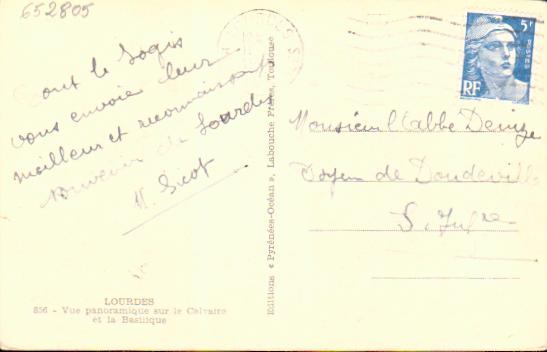 652805
ont le Logis
vous envoie leur
meilleur et reconnaissant
souvenir de Lourdes
5F
POSTES
RF
Monsieur l'abbé Denize
Doyen de Doudeville
S. Infre
Editions « Pyrénées-Océan », Labouche Frères, Toulouse
LOURDES
856 - Vue panoramique sur le Calvaire
et la Basilique